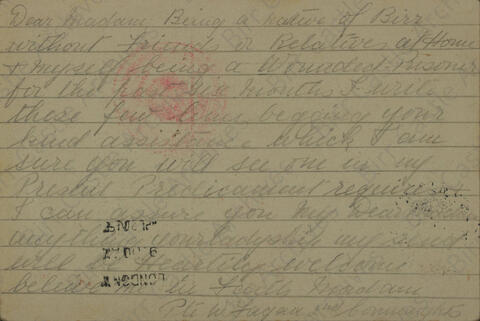 Dear Madam Being a native of Birr
without friends or Relatives at Home
& Myself being a Wounded Prisoner
for the past six Months I write
these few lines begging your
kind assistance which I am
sure you will see one in my
Present Predicament requires &
I can assure you My Dear
any
will be heartily welcome
believe me in Madam
Pte W Fagan 2nd Connaughts
LONDON